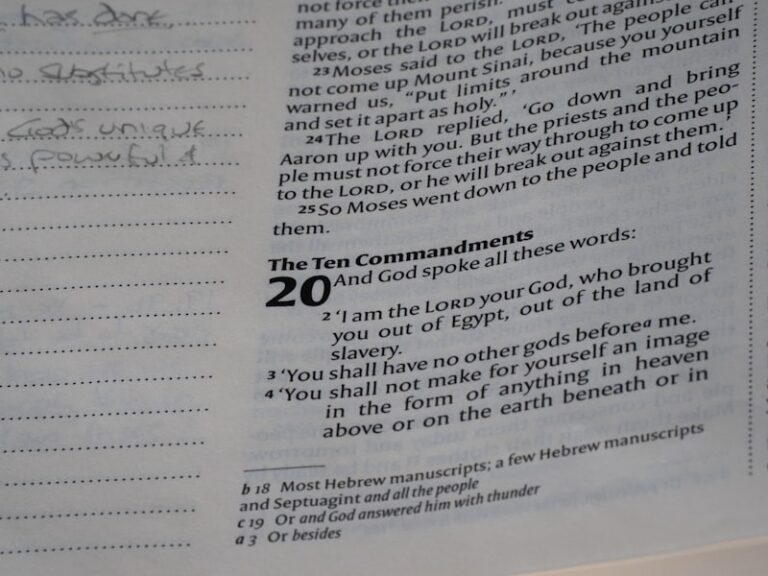 has done,
substitutes
God's unique
powerful &
not force the
many of them perish.
approach the LORD, must
selves, or the LORD will break out against
23 Moses said to the LORD, ‘The people can
not come up Mount Sinai, because you yourself
warned us, “Put limits around the mountain
and set it apart as holy.” ’
24 The LORD replied, ‘Go down and bring
Aaron up with you. But the priests and the peo-
ple must not force their way through to come up
to the LORD, or he will break out against them.’
25 So Moses went down to the people and told
them.
The Ten Commandments
20 And God spoke all these words:
2 ‘I am the LORD your God, who brought
you out of Egypt, out of the land of
slavery.
3 ‘You shall have no other gods before a me.
4 ‘You shall not make for yourself an image
in the form of anything in heaven
above or on the earth beneath or in
b 18 Most Hebrew manuscripts; a few Hebrew manuscripts
and Septuagint and all the people
c 19 Or and God answered him with thunder
a 3 Or besides